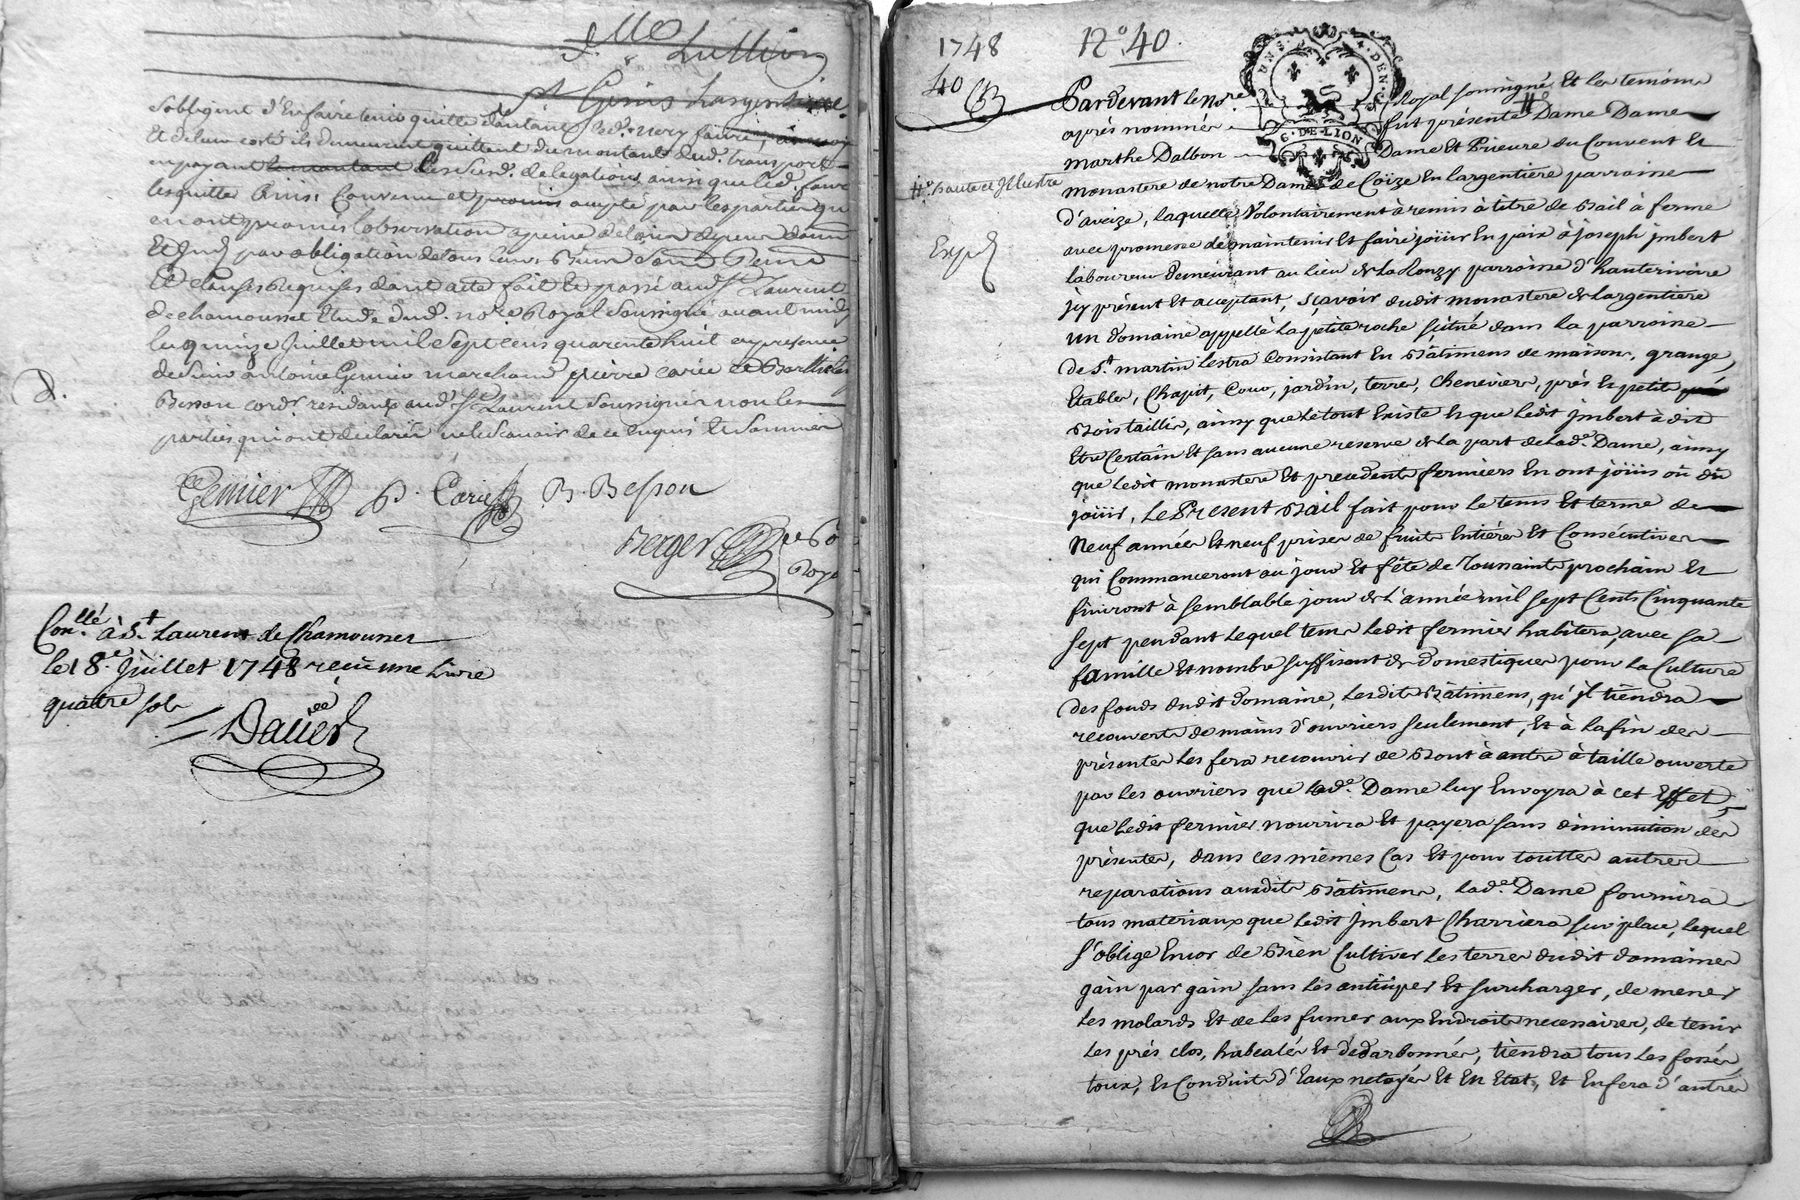 Mlle Lullion
St Genis Largentiere
s'obligent d'En faire tenir quitte d'autant led. faure,
Et de leur coté ils demeurent quittent du montant dud. transport
en payant les susd. delegations ainsi que led. faure
les quitte Ainsi Convenu et accepté par les parties qui
en ont promis l'observation a peine de
Et par obligation de tous leurs Biens
Et Clauses Requises dont acte fait Et passé aud. St Laurent
de chamousset Etude dud. nore Royal soussigné avant midy
le quinze Juillet mil sept cens quarente huit en presence
de sieur antoine Gemier marchand pierre carie Et Barthelemy
Besson cordr residants aud. St Laurent soussignés non les
parties qui ont declaré ne le scavoir de ce Enquis Et sommés
D.
Gemier P. Carie B. Besson
Berger nre
Roya
Conllé à St Laurent de Chamousset
le 18e Juillet 1748 reçu une livre
quattre sols
Dauer
1748 No. 40.
40
UN S. DEN.
G. DE LION
Pardevant le Nore Royal soussigné Et les temoins
après nommés fut présente # Dame Dame
marthe Dalbon Dame Et Prieure du Couvent Et
#. haute et Illustre
monastere de notre Dame de Coïze En largentiere parroisse
d'aveize, laquelle Volontairement à remis à titre de Bail à ferme
avec promesse de maintenir Et faire joüir En paix à joseph jmbert
laboureur demeurant au lieu de la Ronzy parroisse d'hauterivoire
Expé
jcy présent Et acceptant, sçavoir dudit monastere de Largentiere
un domaine appellé la petite roche scitué dans la parroisse
de St martin Lestra Consistant En Bâtimens de maison, grange,
Etables, Chapit, Cour, jardin, terres, Cheneviers, près Et petit
Bois taillis, ainsy que le tout Existe Et que ledit jmbert à dit
Etre Certain Et sans aucune reserve de la part de lade. Dame, ainsy
que ledit monastere Et precedents fermiers En ont joüis où dû
joüir, Le Present Bail fait pour le tems Et terme de
Neuf années Et neuf prises de fruits Entiéres Et Consécutives
qui Commanceront au jour Et fête de Toussaints prochain Et
finiront à semblable jour de l'année mil sept Cents Cinquante
sept pendant lequel tems ledit fermier habitera, avec sa
famille Et nombre suffisant de domestiques pour la Culture
des fonds dudit domaine, lesdits Bâtimens, qu'jl tiendra
recouverts de mains d'ouvriers seulement, Et à la fin des
présentes les fera recouvrir de Bout à autre à taille ouverte
par les ouvriers que lade. Dame luy Envoyra à cet Effet,
que ledit fermier nourrira Et payera sans diminution des
présentes, dans ces mêmes Cas Et pour touttes autres
reparations ausdits Bâtimens, lade. Dame fournira
tous materiaux que ledit jmbert Charriera sur place, lequel
s'oblige Encor de Bien Cultiver les terres dudit domaine
gain par gain sans les anticiper Et surcharger, de mener
les molards Et de les fumer aux Endroits necessaires, de tenir
les prés clos, habealés Et dédarbonnés, tiendra tous les fossés
toux, Et Conduits d'Eaux netoyés Et En Etat, Et En fera d'autres